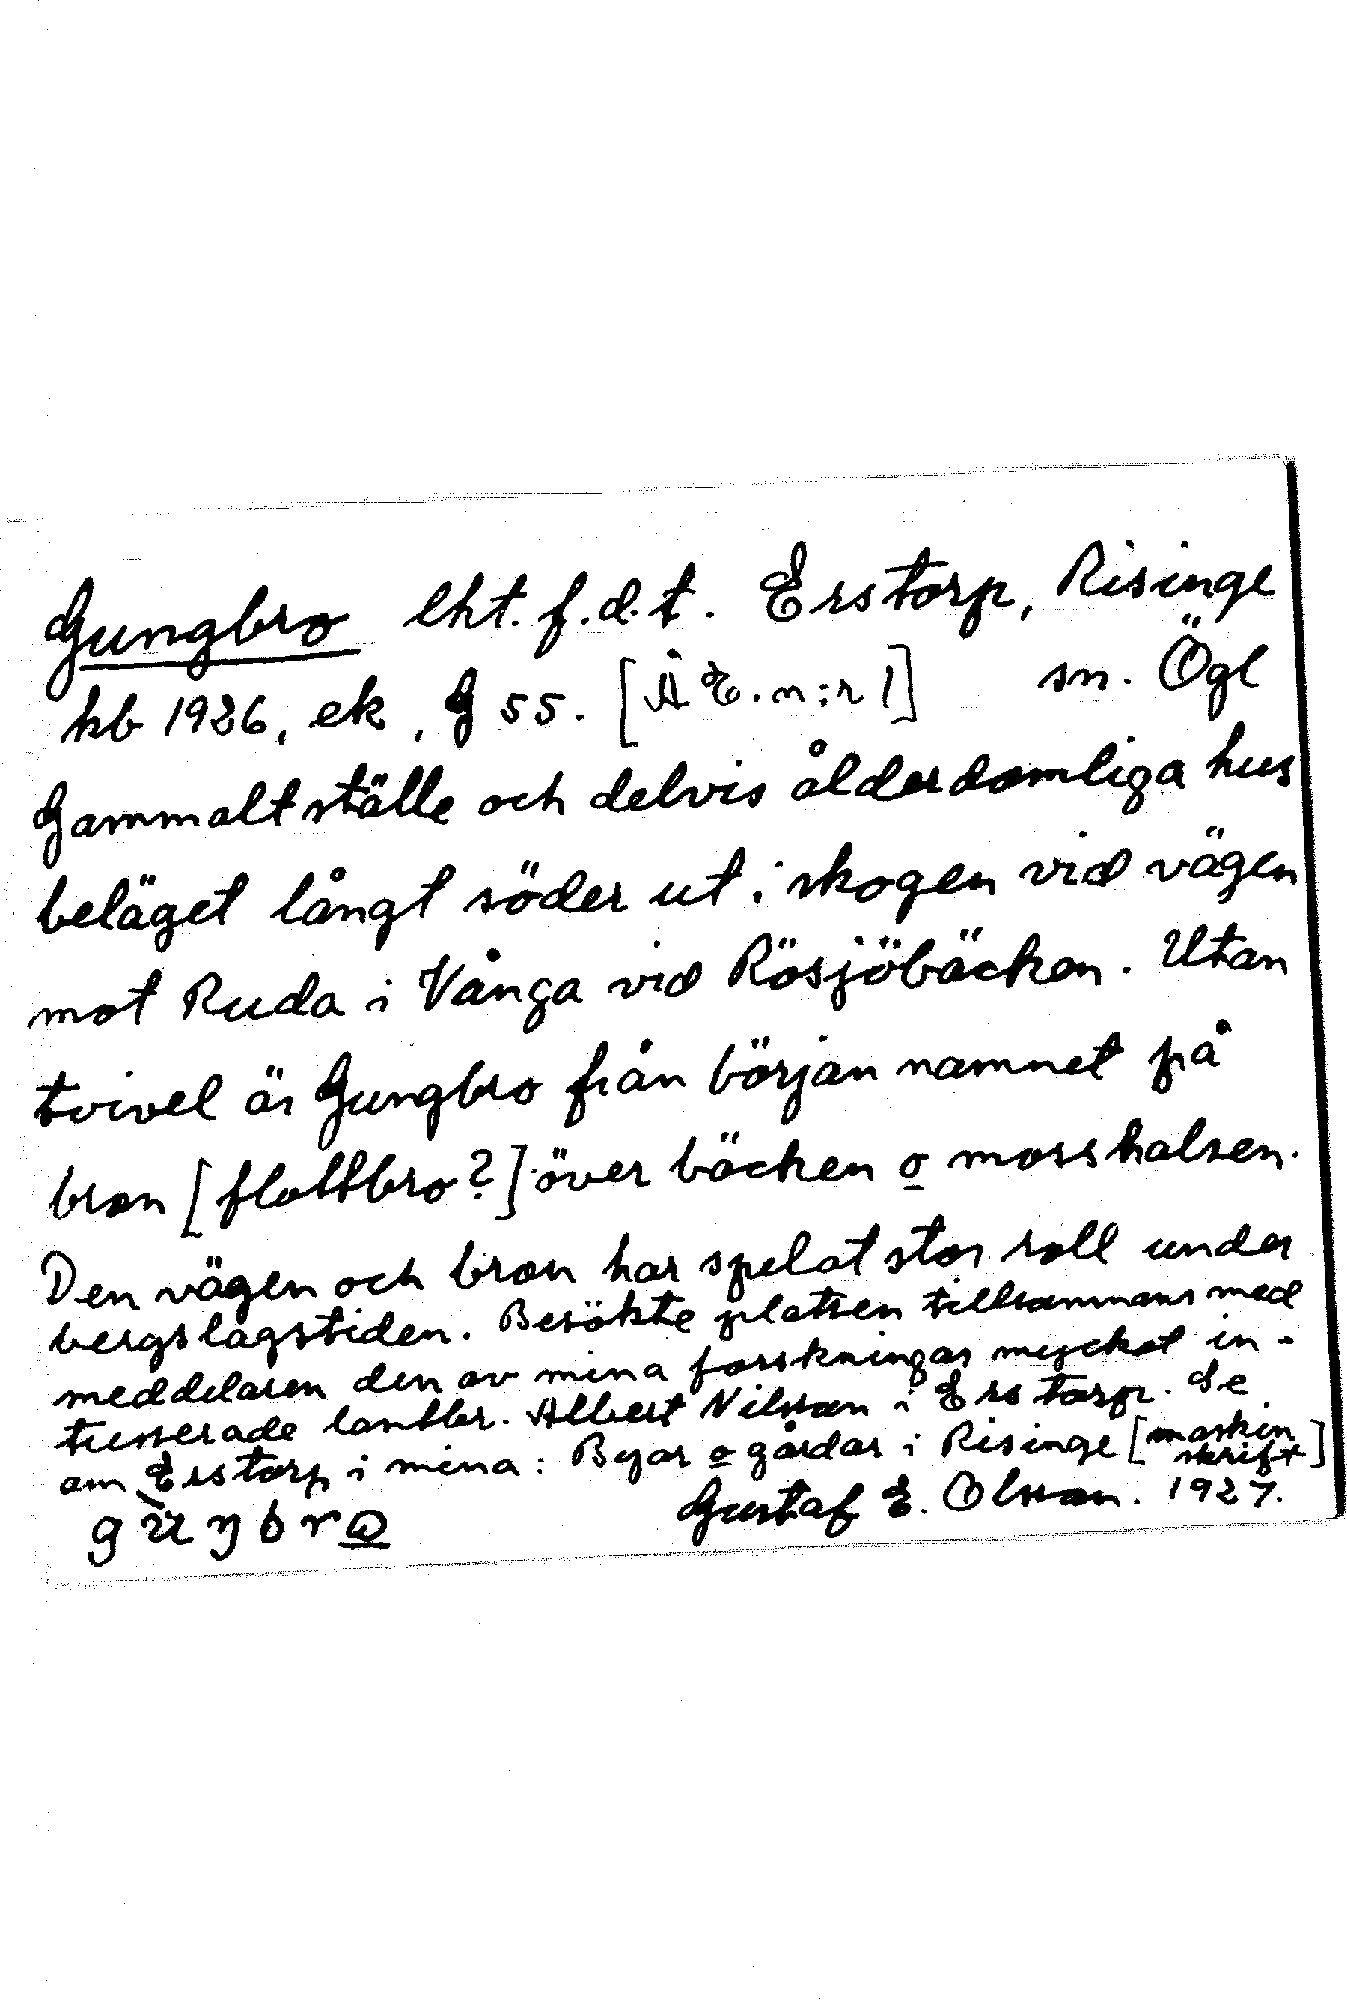 Gungbro lht. f.d.t. Erstorp, Risinge
hb 1926, ek, G 55. [ÄE.n:r 1] sn. Ögl
Gammalt ställe och delvis ålderdomliga hus
beläget långt söder ut i skogen vid vägen
mot Ruda i Vånga vid Rösjöbäcken. Utan
tvivel är Gungbro från början namnet på
bron [flottbro?] över bäcken o mosshalsen.
Den vägen och bron har spelat stor roll under
bergslagstiden. Besökte platsen tillsammans med
meddelaren den av mina forskningar mycket in-
tresserade lantbr. Albert Nilsson i Erstorp. Se
om Erstorp i mina: Byar o gårdar i Risinge [maskin
skrift]
Gustaf E. Olsson. 1927.